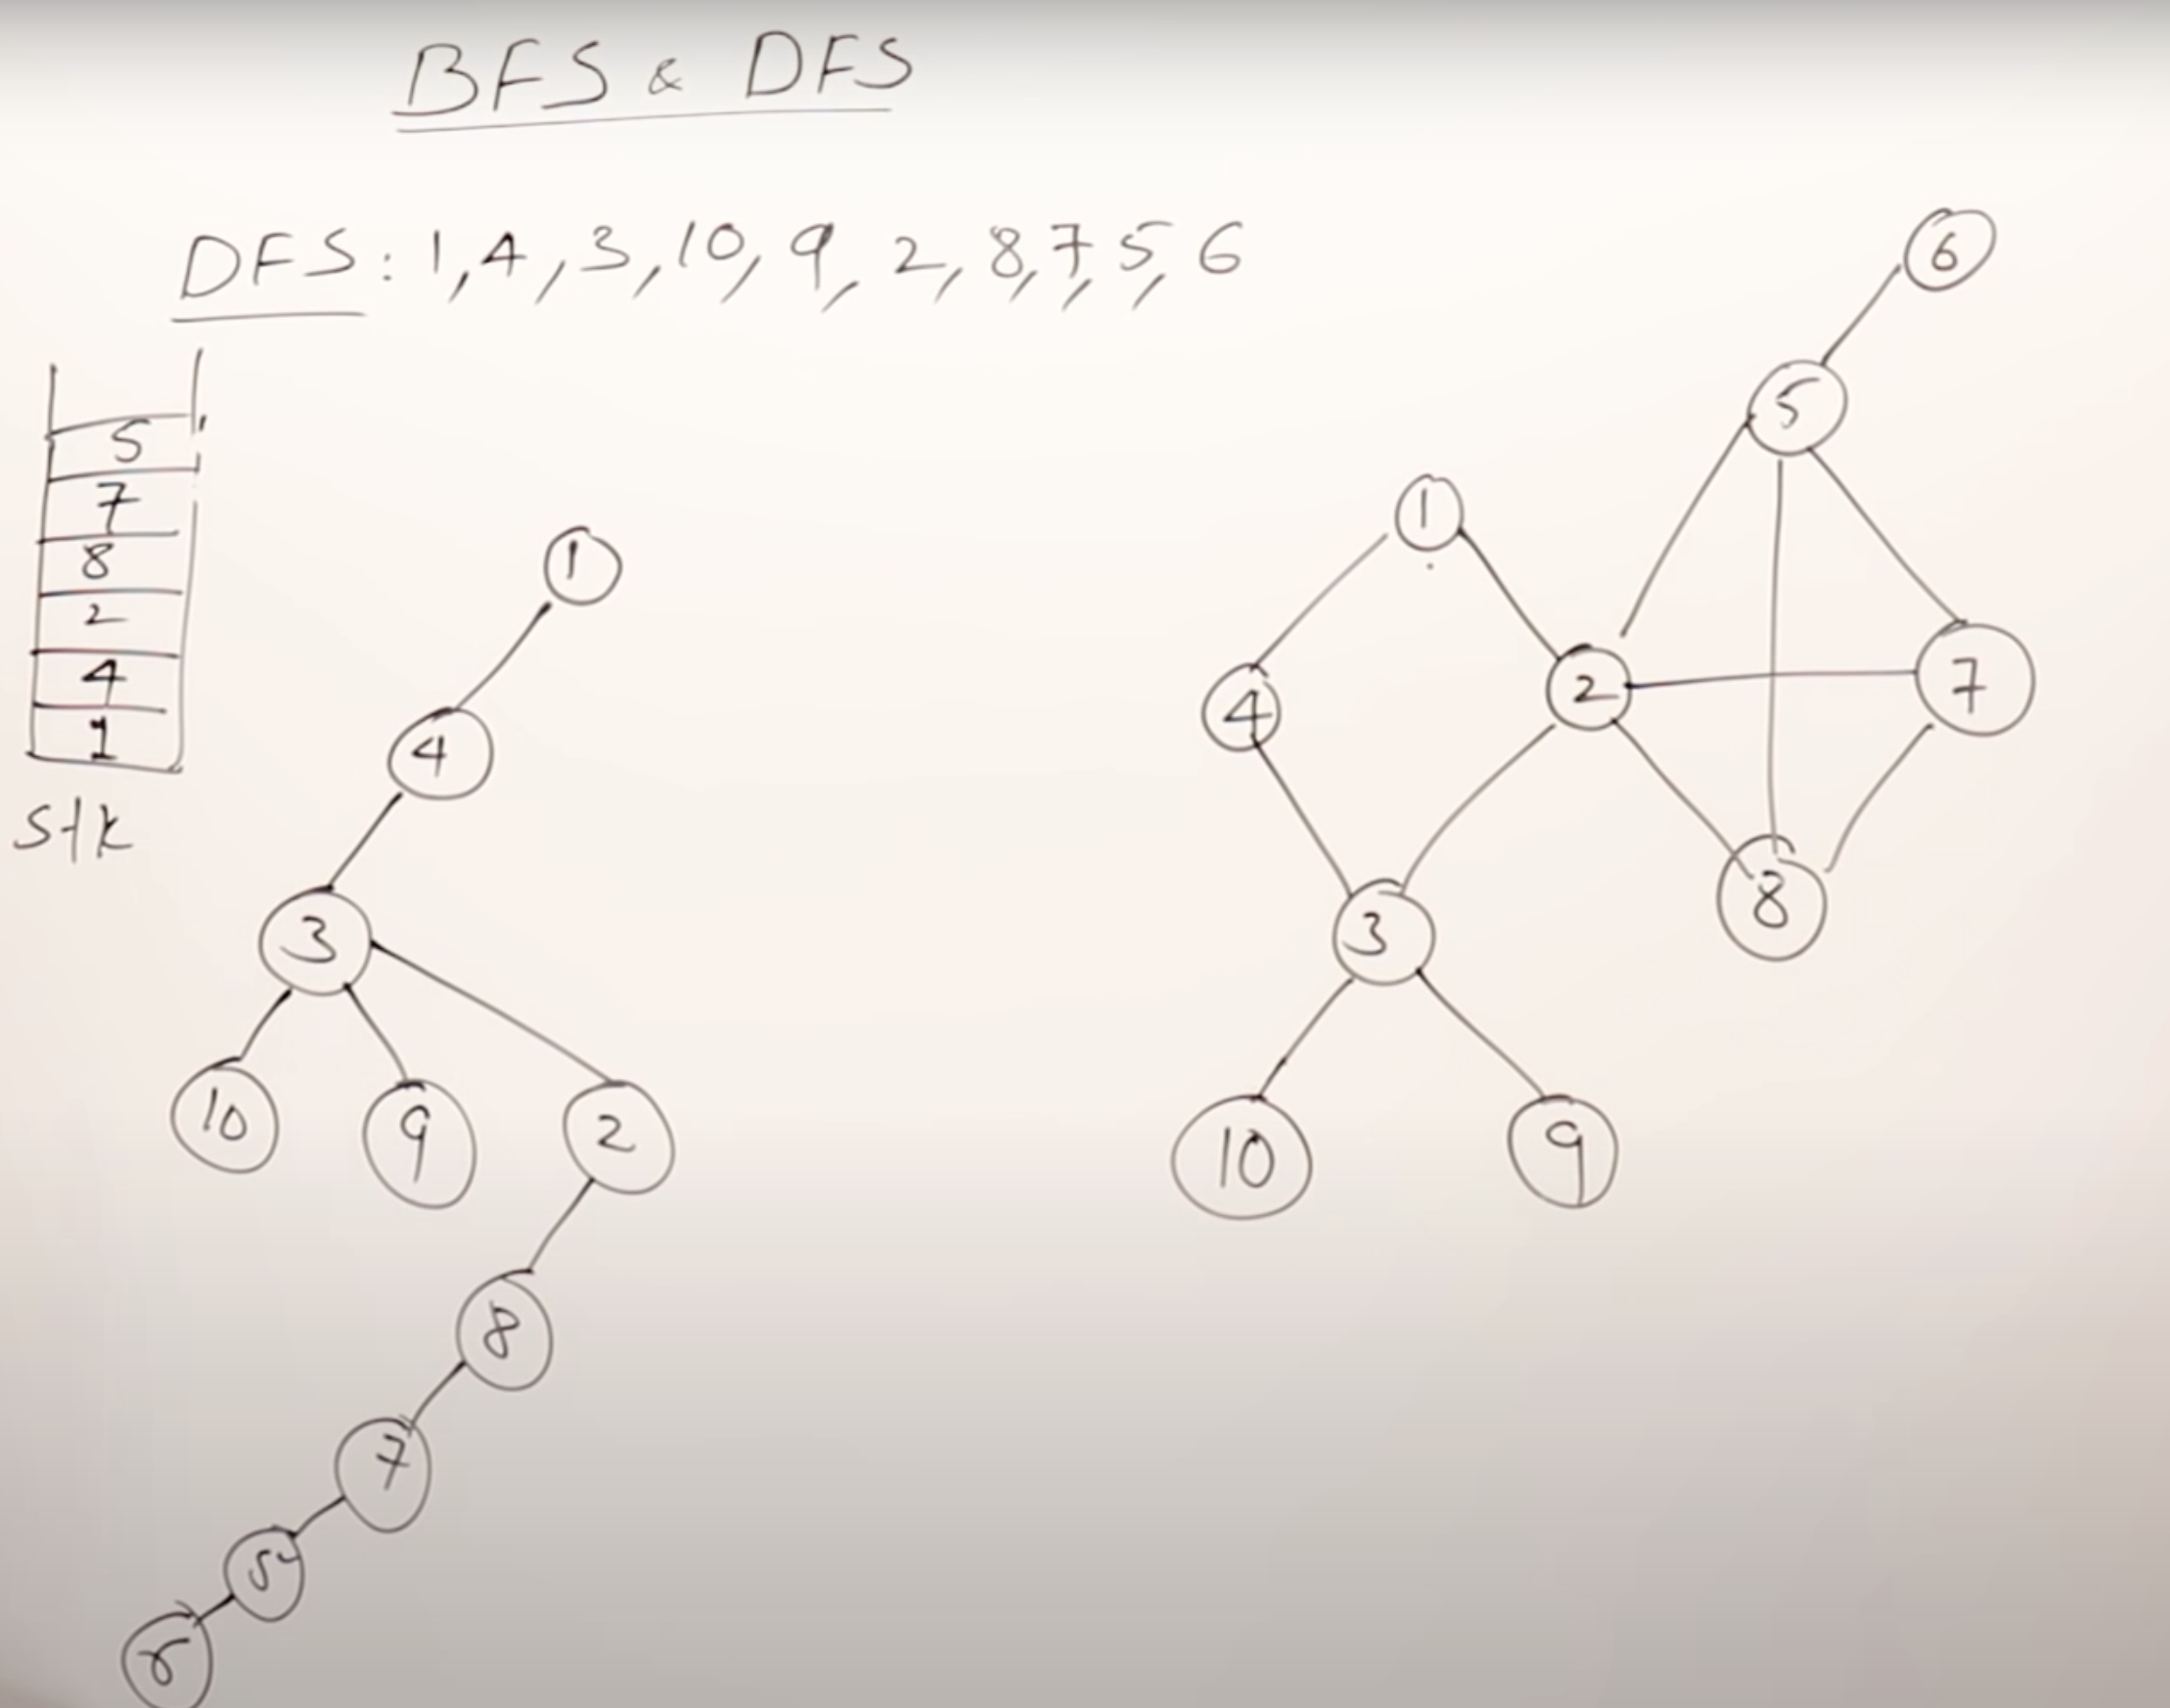 BFS & DFS
DFS: 1, 4, 3, 10, 9, 2, 8, 7, 5, 6
5
7
8
2
4
1
stk
1
4
3
10
9
2
8
7
5
6
6
5
1
2
7
4
8
3
10
9